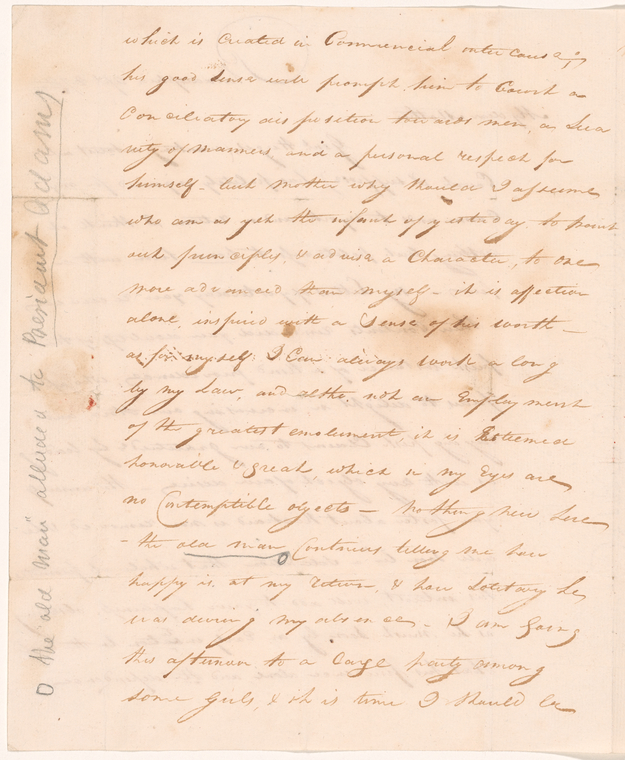 which is created in Commercial intercourse;
his good sense will prompt him to Court a
Conciliatory disposition towards men, a Sua
vity of manners and a personal respect for
himself - but Mother why should I assume
who am as yet the infant of yesterday, to point
out principles, & advise a Character, to one
more advanced than myself - it is affection
alone, inspired with a Sense of his worth -
as for myself I Can always work along
by my Law, and altho. not an Employment
of the greatest emolument, it is Esteemed
honorable & great, which in my Eyes are
no Contemptible objects - nothing new here
- the old man Continues telling me how
happy is, at my return, & how Solitary he
was during my absence - I am going
this afternoon to a large party among
some Girls, & it is time I should be
O the "old man" alluded to President Adams.